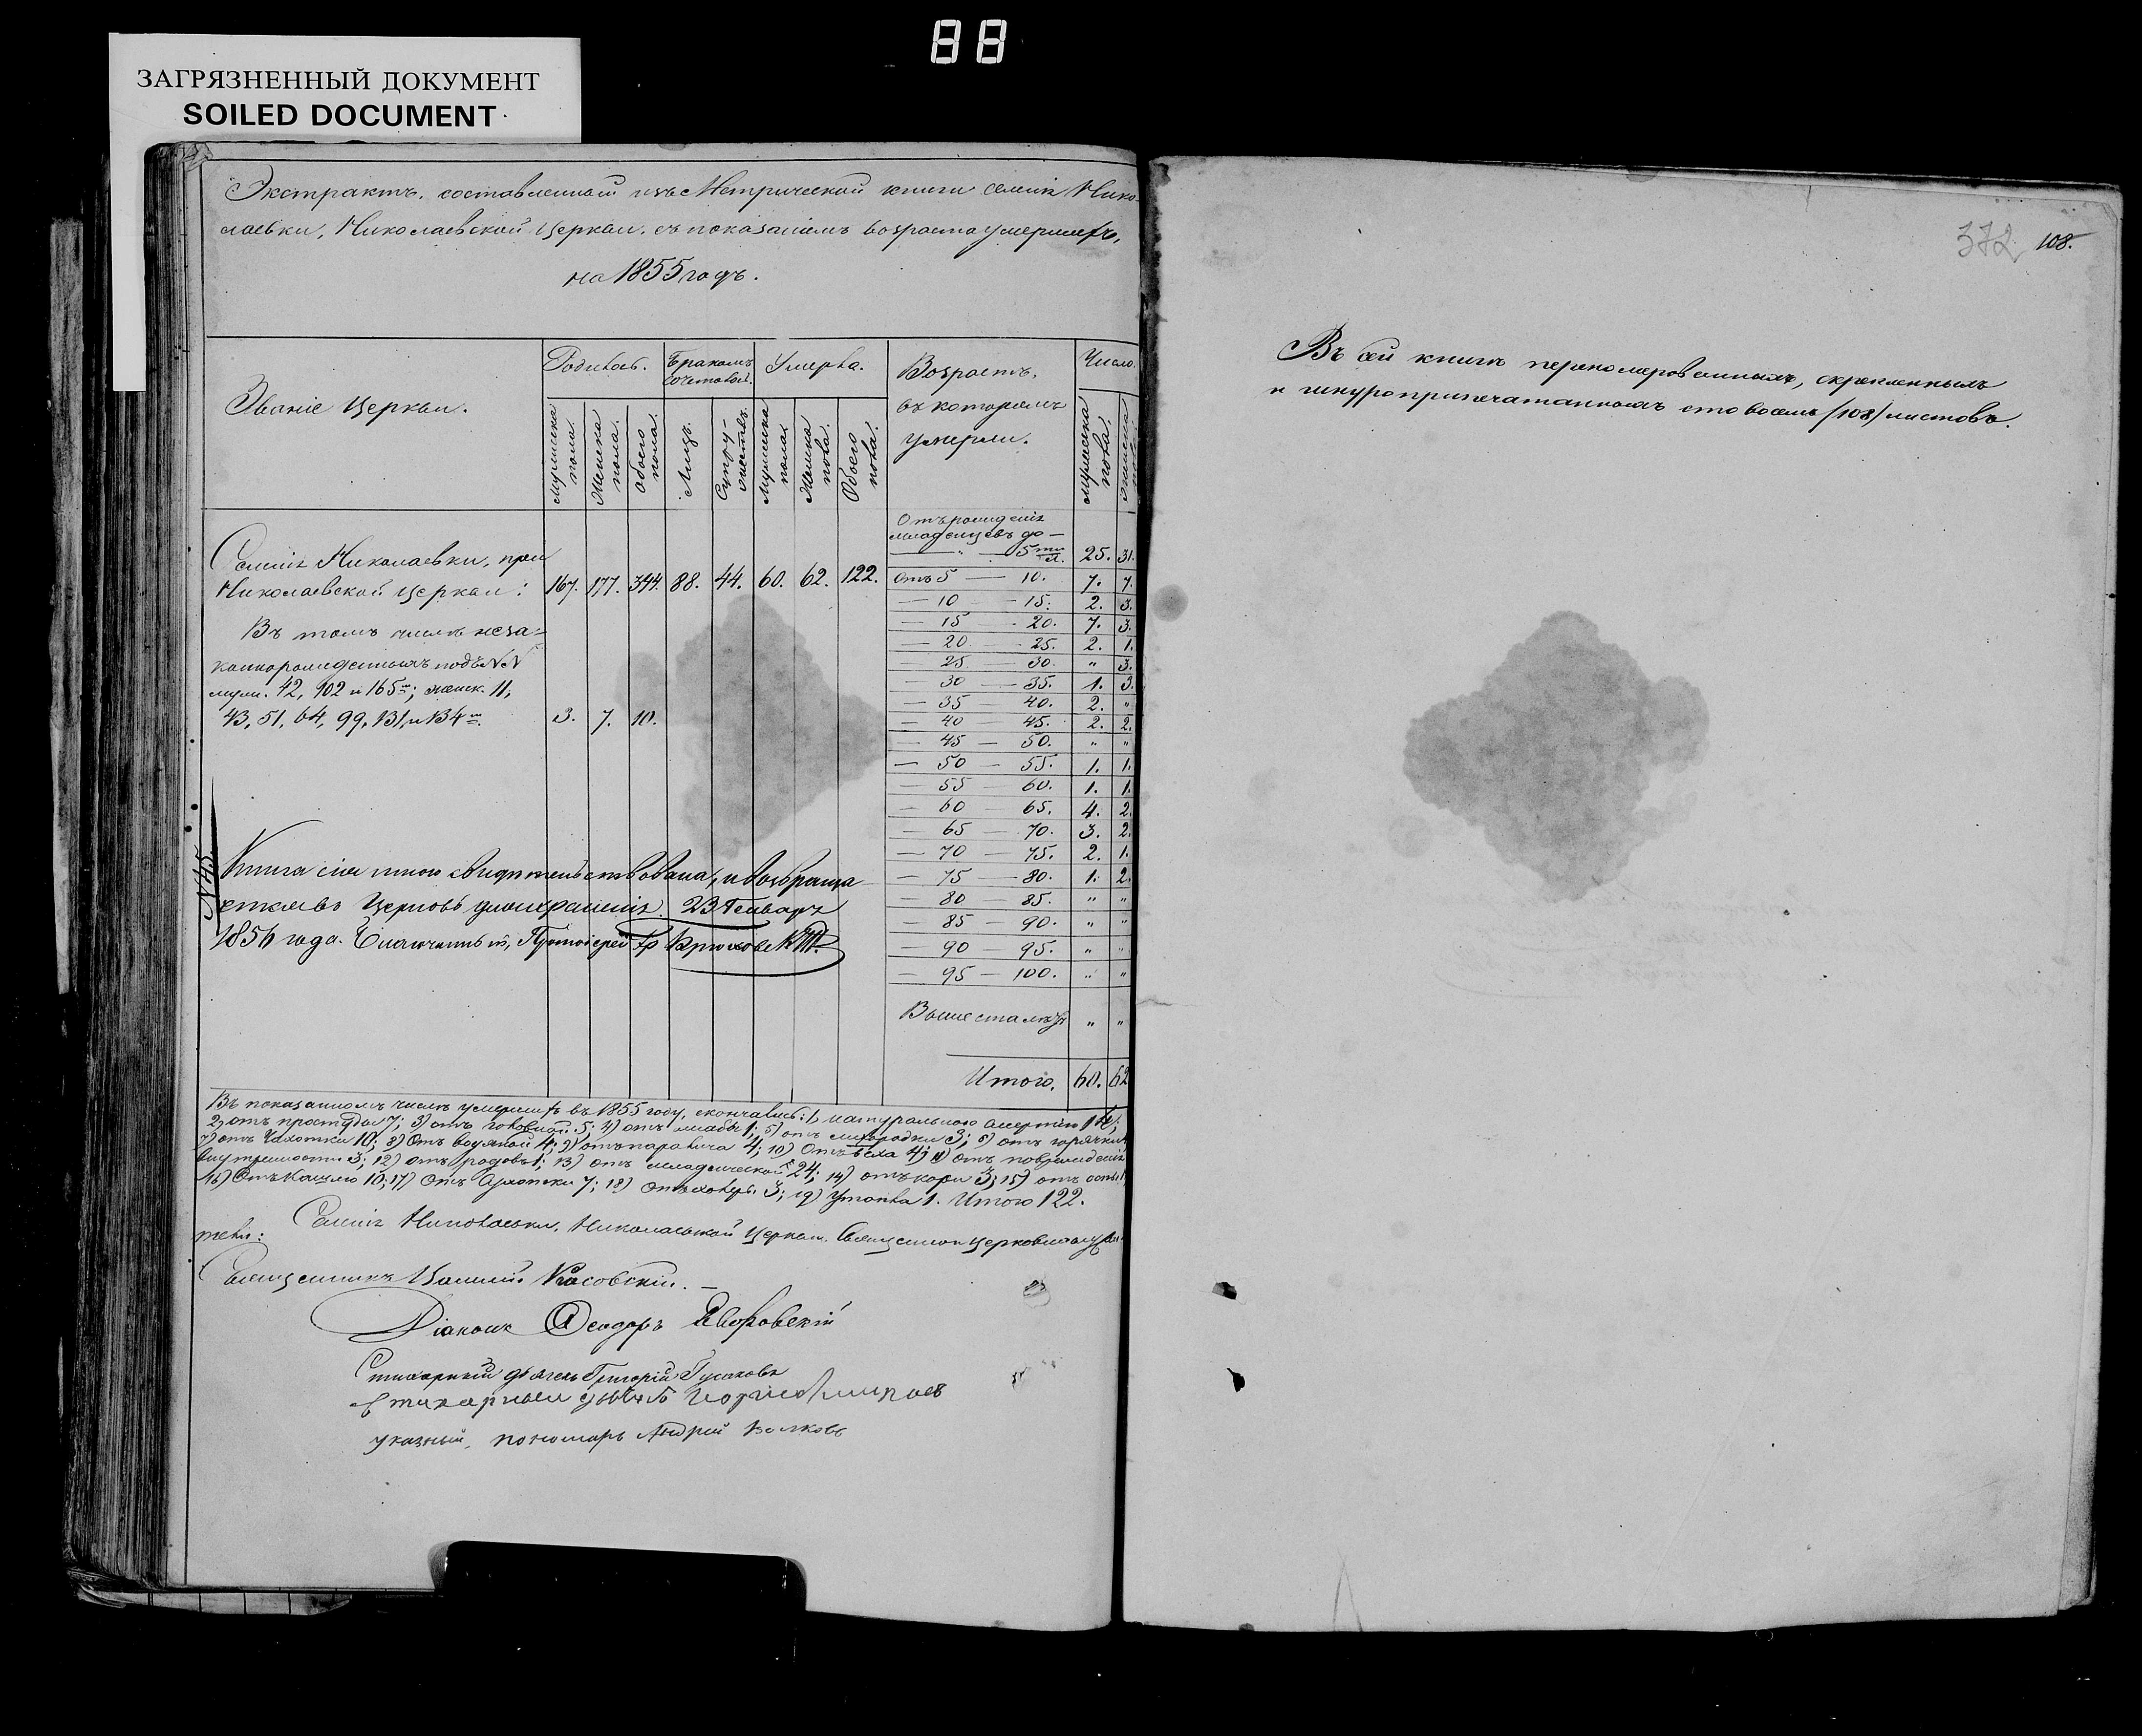 88
ЗАГРЯЗНЕННЫЙ ДОКУМЕНТ
SOILED DOCUMENT
Экстрактъ, составленный изъ Метрической книги селенія Нико-
лаевки, Николаевской Церкви, съ показаніемъ возраста умершихъ,
на 1855 годъ.
Званіе Церкви.
Родилось.
Бракомъ сочеталось.
Умерло.
Возрастъ, въ которомъ умерли.
Число.
Мужеска пола.
Женска пола.
Обоего пола.
Лицъ.
Супружествъ.
Мужеска пола.
Женска пола.
Обоего пола.
Мужеска пола.
Женска
Селенія Николаевки, при
Николаевской Церкви: 167. 177. 344. 88. 44. 60. 62. 122.
Въ томъ числѣ неза-
коннорожденныхъ подъ №№
муж. 42, 102 и 165; женск. 11,
43, 51, 64, 99, 131, и 134. 3. 7. 10.
Отъ рожденія
младенцевъ до
— " — 5 ти л. 25. 31.
Отъ 5 — 10. 7. 7.
— 10 — 15. 2. 3.
— 15 — 20. 7. 3.
— 20 — 25. 2. 1.
— 25 — 30. " 3.
— 30 — 35. 1. 3.
— 35 — 40. 2. "
— 40 — 45. 2. 2.
— 45 — 50. " "
— 50 — 55. 1. 1.
— 55 — 60. 1. 1.
— 60 — 65. 4. 2.
— 65 — 70. 3. 2.
— 70 — 75. 2. 1.
— 75 — 80. 1. 2.
— 80 — 85. " "
— 85 — 90. " "
— 90 — 95. " "
— 95 — 100. " "
Выше ста лѣтъ " "
Итого. 60. 62
№ 45.
Книга сія мною свидѣтельствована, и возвраща
ется въ Церковь для храненія. 23 Генваря
1856 года. Благочинный, Протоіерей
Въ показанномъ числѣ умершихъ въ 1855 году, скончались: 1, натуральною смертію
2, отъ простуды 7; 3) отъ головной 5; 4) отъ 1; 5) отъ лихорадки 3; 6) отъ горячки
7) отъ Чахотки 10; 8) Отъ водяной 4; 9) отъ паралича 4; 10) Отъ 4; 11) Отъ поврежденія
внутренности 3; 12) отъ родовъ 1; 13) отъ младенческой 24; 14) отъ кори 3; 15) отъ оспы
16) Отъ Кашлю 10; 17) Отъ 7; 18) Отъ холеры 3; 19) Утопла 1. Итого 122.
Селенія Николаевки, Николаевской Церкви Священно и церковнослужи-
тели:
Священникъ Косовскій.
Діаконъ Ѳеодоръ Яворовскій
Стихарный дьячекъ Григорій Гусаковъ
Стихарный
указный, пономарь Андрей Волковъ
372 108.
Въ сей книгѣ перенумерованныхъ, скрепленныхъ
и шнуроприпечатанныхъ сто восемь (108) листовъ.